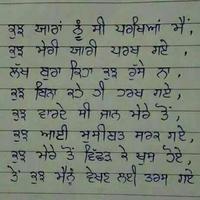 ਕੁਝ ਯਾਰਾਂ ਨੂੰ ਸੀ ਪਰਖਿਆਂ ਮੈਂ,
ਕੁਝ ਮੇਰੀ ਯਾਰੀ ਪਰਖ ਗਏ,
ਲੱਖ ਬੁਰਾ ਕਿਹਾ ਕੁਝ ਰੁੱਸੇ ਨਾ,
ਕੁਝ ਬਿਨਾ ਕਹੇ ਹੀ ਹਰਖ ਗਏ,
ਕੁਝ ਵਾਰਦੇ ਸੀ ਜਾਨ ਮੇਰੇ ਤੋਂ,
ਕੁਝ ਆਈ ਮੁਸੀਬਤ ਸਰਕ ਗਏ,
ਕੁਝ ਮੇਰੇ ਤੋਂ ਵਿੱਛੜ ਕੇ ਖੁਸ਼ ਹੋਏ,
ਤੇ ਕੁਝ ਮੈਨੂੰ ਵੇਖਣ ਲਈ ਤਰਸ ਗਏ